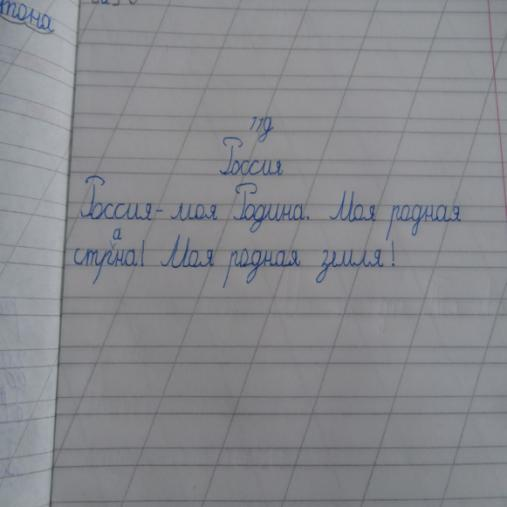 тона
11д
Россия
Россия - моя Родина. Моя родная
страна! Моя родная земля!